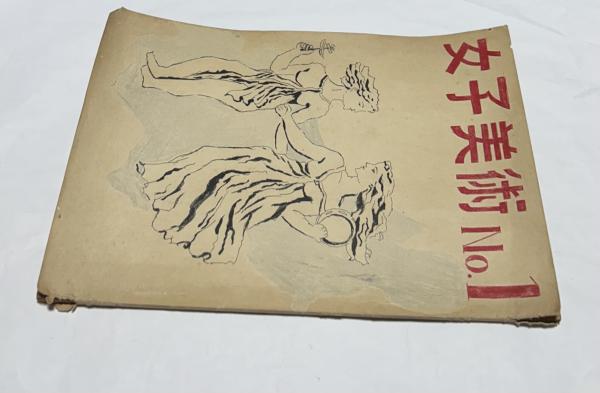 女子美術 No.1